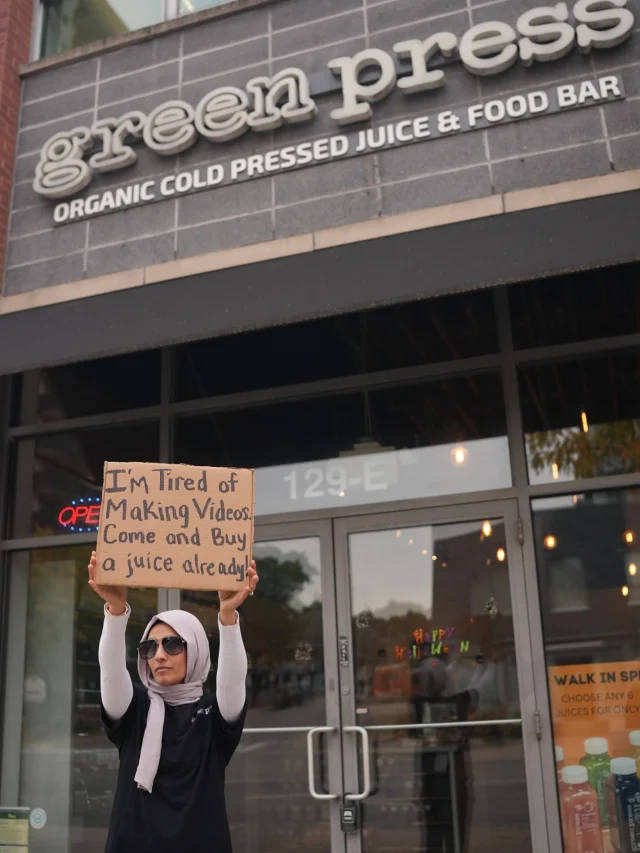 green press
ORGANIC COLD PRESSED JUICE & FOOD BAR
129-E
OPE
I'm Tired of
Making Videos.
Come and Buy
a juice already!
Happy
Halloween
WALK IN SP
CHOOSE ANY 6
JUICES FOR ONLY